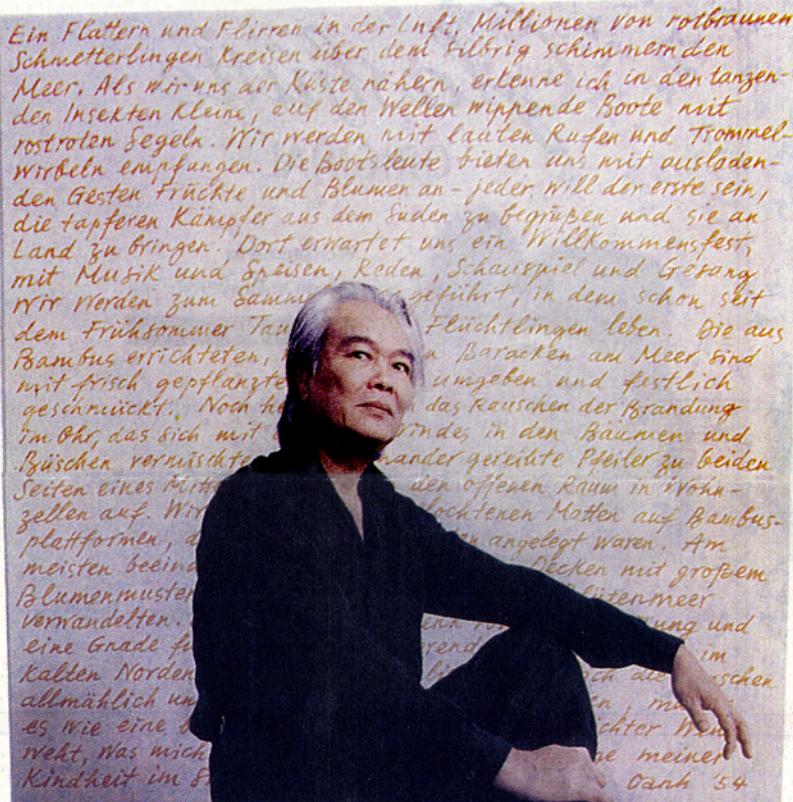 Ein Flattern und Flirren in der Luft, Millionen von rotbraunen
Schmetterlingen kreisen über dem silbrig schimmernden
Meer. Als wir uns der Küste nähern, erkenne ich in den tanzen-
den Insekten kleine, auf den Wellen wippende Boote mit
rostroten Segeln. Wir werden mit lauten Rufen und Trommel-
wirbeln empfangen. Die Bootsleute bieten uns mit ausladen-
den Gesten Früchte und Blumen an - jeder will der erste sein,
die tapferen Kämpfer aus dem Süden zu begrüßen und sie an
Land zu bringen. Dort erwartet uns ein Willkommensfest,
mit Musik und Speisen, Reden, Schauspiel und Gesang
Wir werden zum Samm geführt, in dem schon seit
dem Frühsommer Tau Flüchtlingen leben. Die aus
Bambus errichteten, Baracken am Meer sind
mit frisch gepflanzte umgeben und festlich
geschmückt. Noch das Rauschen der Brandung
im Ohr, das sich mit indes in den Bäumen und
Büschen vermischte ander gereihte Pfeiler zu beiden
Seiten eines Mitt den offenen Raum in Wohn-
zellen auf. Wir lochtenen Matten auf Bambus-
plattformen, angelegt waren. Am
meisten beeind Decken mit großem
Blumenmuster lütenmeer
verwandelten. ung und
eine Gnade im
kalten Norden schen
allmählich
es wie eine chter
weht, was mich meiner
Kindheit im Oanh '54